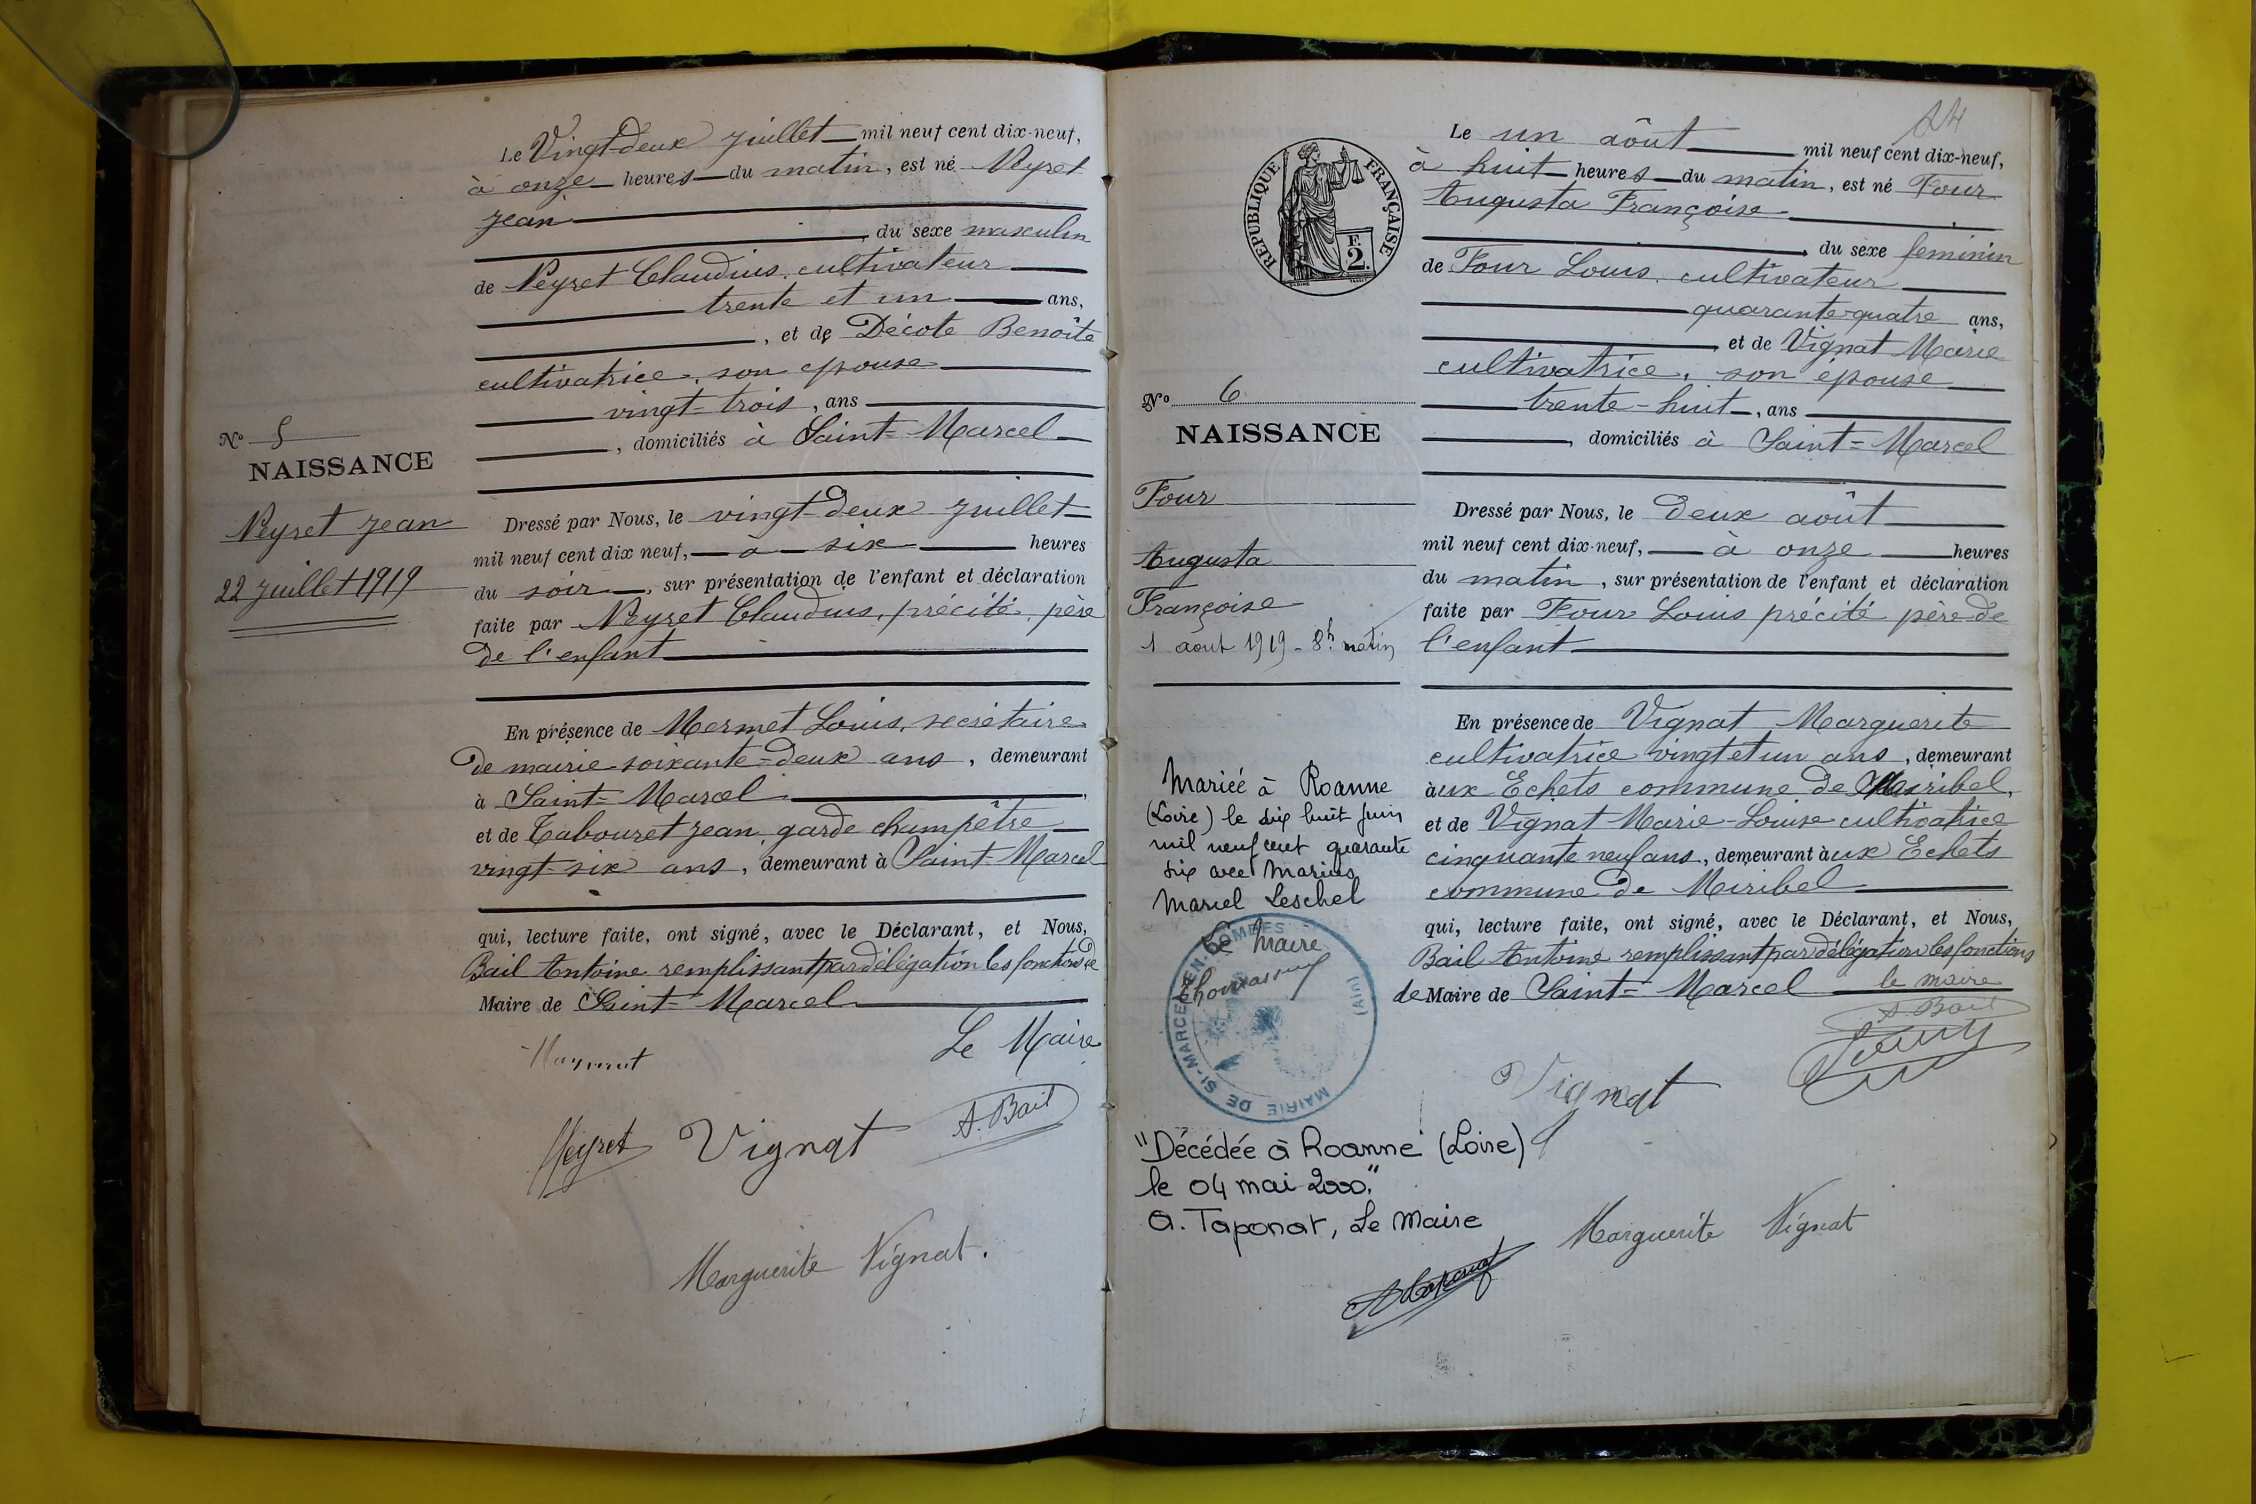 Le Vingt-deux juillet mil neuf cent dix-neuf,
à onze heures du matin, est né Neyret
Jean
du sexe masculin
de Neyret Claudius, cultivateur
trente et un ans,
, et de Décote Benoîte
cultivatrice, son épouse
vingt-trois, ans
, domiciliés à Saint-Marcel
No 5
NAISSANCE
Neyret Jean
22 juillet 1919
Dressé par Nous, le vingt-deux juillet
mil neuf cent dix neuf, à six heures
du soir, sur présentation de l'enfant et déclaration
faite par Neyret Claudius, précité, père
de l'enfant
En présence de Mermet Louis, secrétaire
de mairie soixante-deux ans, demeurant
à Saint-Marcel
et de Tabouret Jean, garde champêtre
vingt-six ans, demeurant à Saint-Marcel
qui, lecture faite, ont signé, avec le Déclarant, et Nous,
Bail Antoine remplissant par délégation les fonctions de
Maire de Saint-Marcel
Le Maire
A. Bail
Neyret
Vignat
Marguerite Vignat.
24
RÉPUBLIQUE FRANÇAISE
F.
2.
Le un aôut mil neuf cent dix-neuf,
à huit heures du matin, est né Four
Augusta Françoise
du sexe feminin
de Four Louis, cultivateur
quarante-quatre ans,
et de Vignat Marie
cultivatrice, son épouse
trente-huit, ans
, domiciliés à Saint-Marcel
No 6
NAISSANCE
Four
Augusta
Françoise
1 août 1919 - 8h matin
Dressé par Nous, le deux août
mil neuf cent dix-neuf, à onze heures
du matin, sur présentation de l'enfant et déclaration
faite par Four Louis précité père de
l'enfant
En présence de Vignat Marguerite
cultivatrice vingt et un ans, demeurant
àux Echets commune de Miribel,
et de Vignat Marie-Louise cultivatrice
cinquante neuf ans, demeurant àux Echets
commune de Miribel
qui, lecture faite, ont signé, avec le Déclarant, et Nous,
Bail Antoine remplissant par délégation les fonctions
de Maire de Saint-Marcel
le maire
A. Bail
Vignat
Marguerite Vignat
Mariée à Roanne
(Loire) le dix huit juin
mil neuf cent quarante
six avec Marius
Marcel Leschel
Le Maire
MAIRIE DE ST-MARCEL-EN-DOMBES
(AIN)
"Décédée à Roanne (Loire)
le 04 mai 2000."
A. Taponat, Le Maire